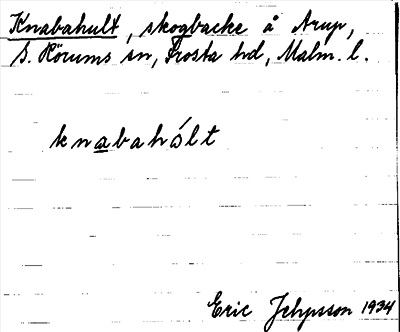 Knabahult, skogbacke å Arup,
S. Hörums sn, Frosta hd, Malm. l.
knabahólt
Eric Jehpsson 1934